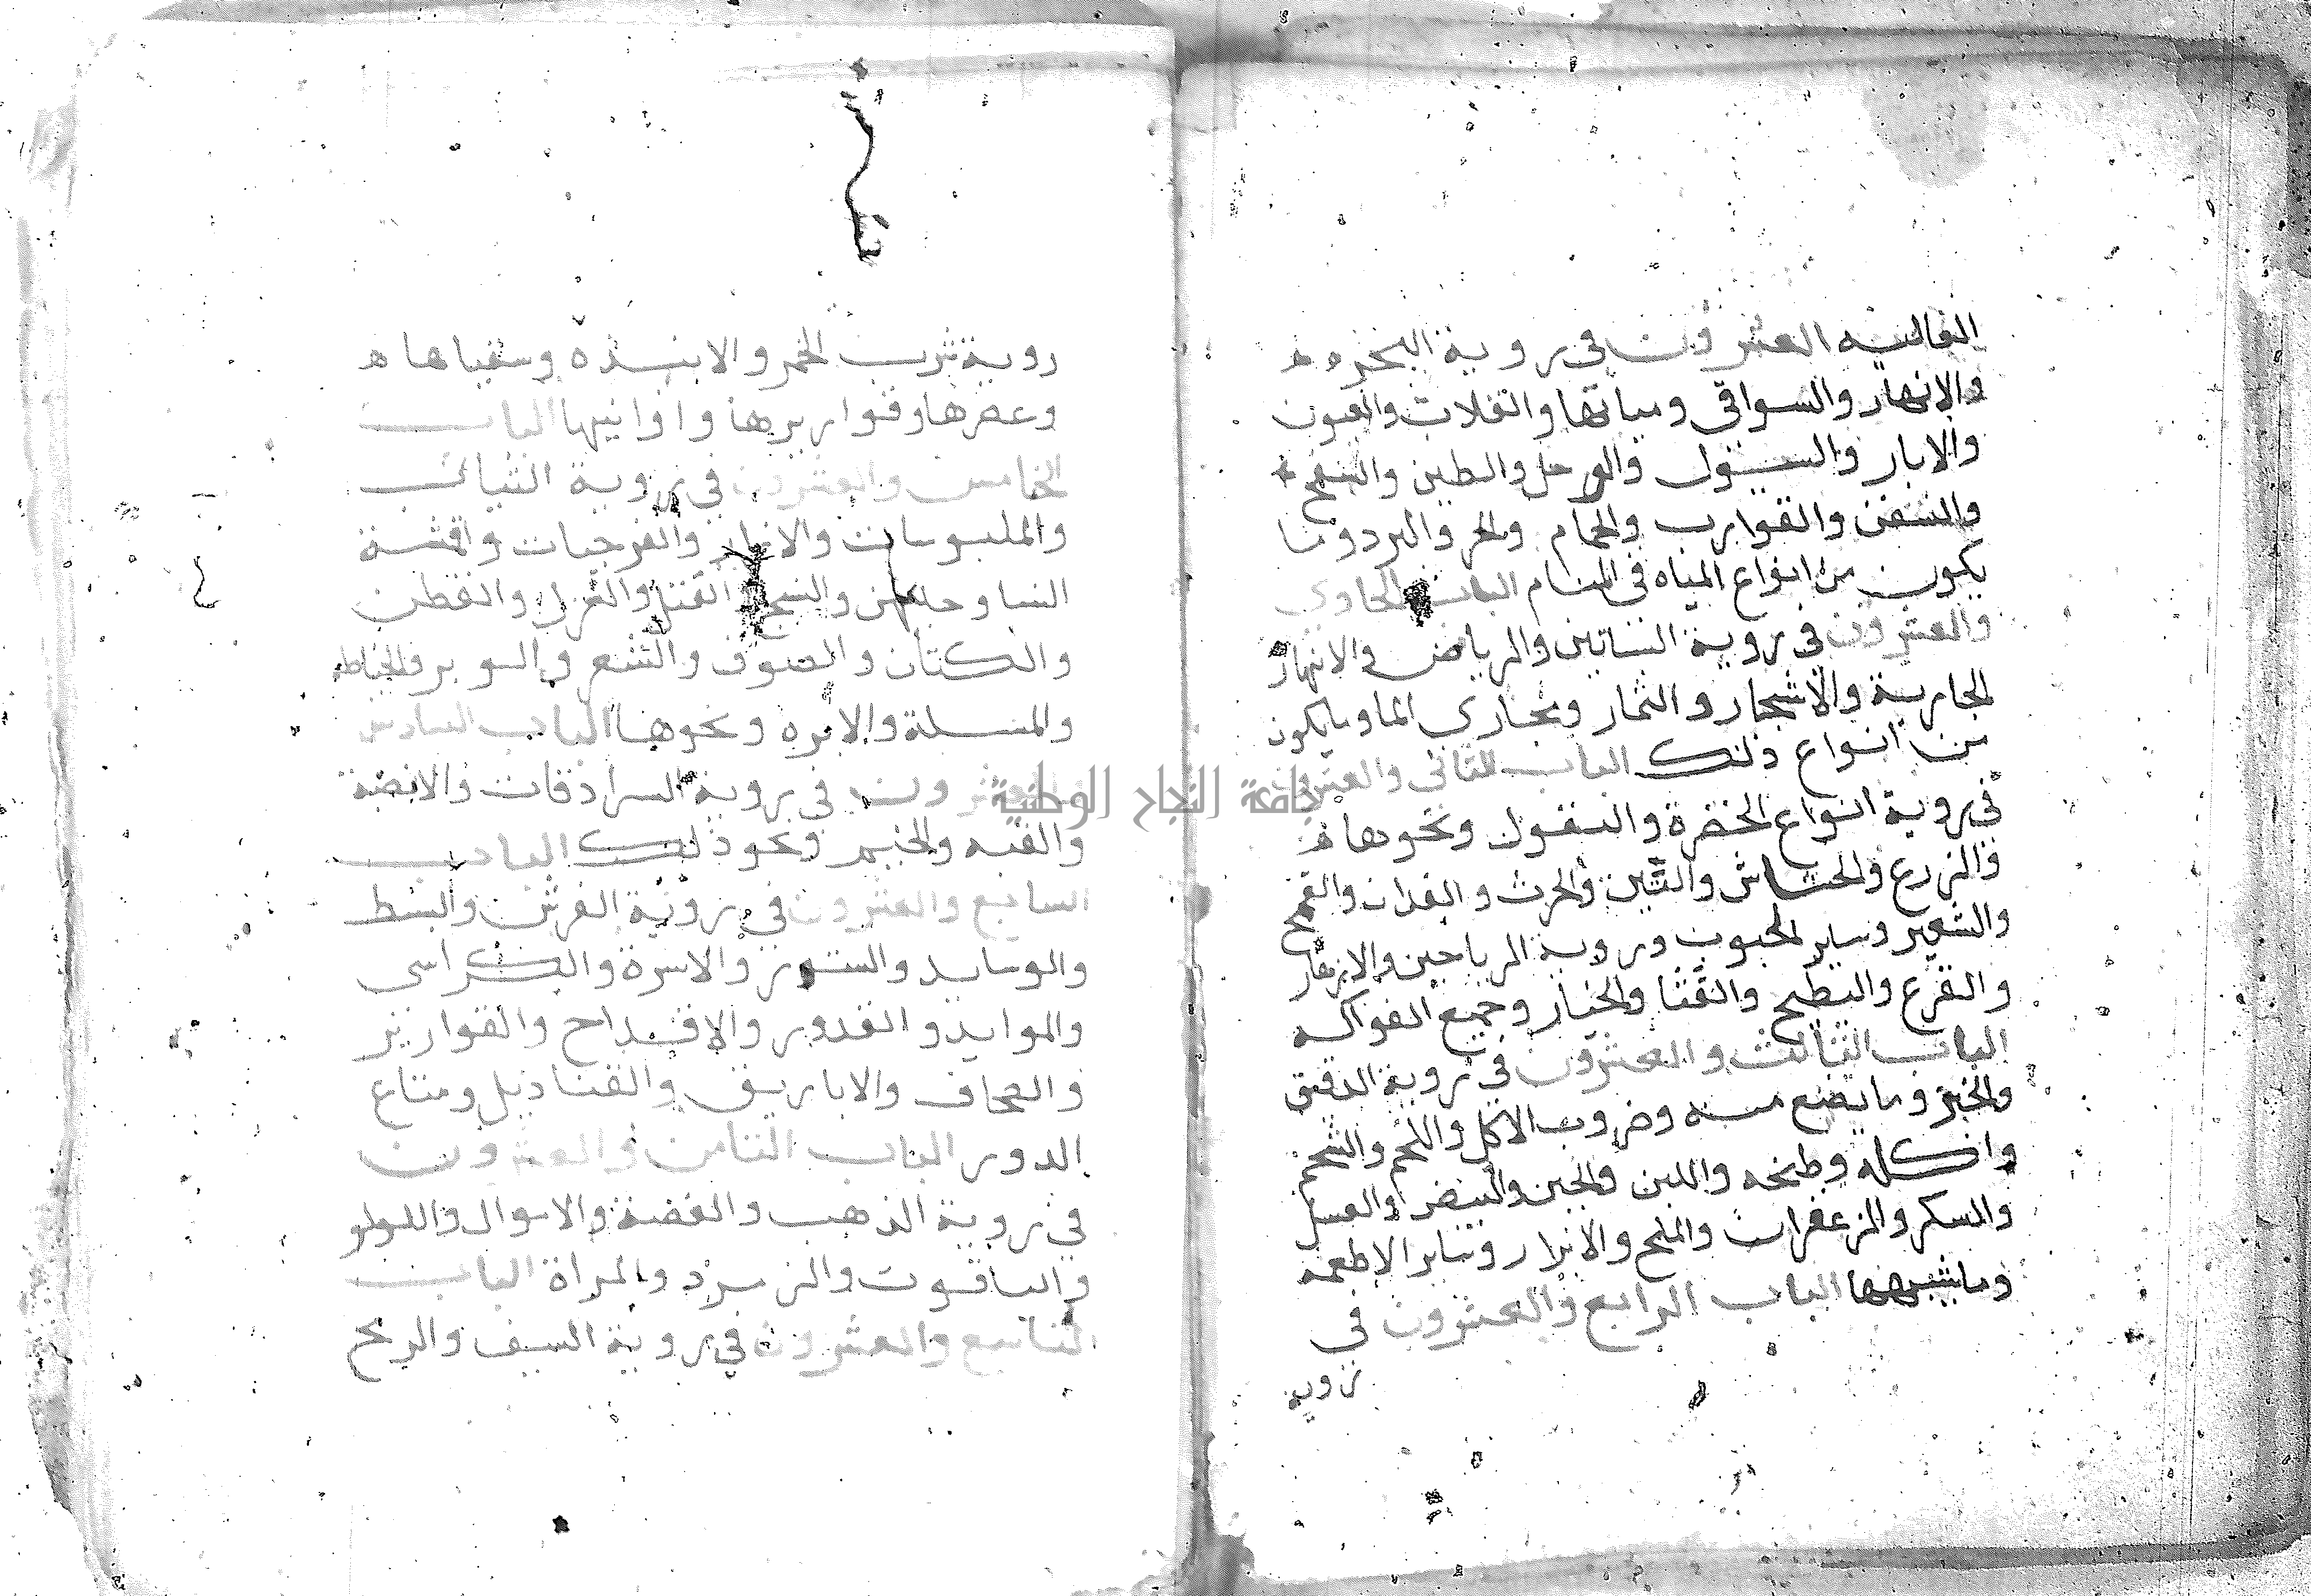 العشرون في روية البخره
والانهار والسواقي ومياتها والقلات والعيون
والابار والسيول والوحل والطين والسفح
والسفن والقوارب والحمام والحر والبرد وما
يكون من انواع المياه في المنام الباب الحادي
والعشرون في روية البساتين والرياض والانهار
الجارية والاشجار والثمار ومجاري الما وما يكون
من انواع ذلك الباب الثاني والعشرون
في روية انواع الخضرة والبقول ونحوها
والزرع والحشاش والتبن والحرث والفدان والقمح
والشعير وساير الحبوب وروية الرياحين والازهار
والقرع والبطيح والقثا والخيار وجميع الفواكه
الباب الثالث والعشرون في روية الدقيق
والخبز وما يصنع منه وضروب الاكل واللحم والشحم
واكله وطبخه واللبن والجبن والبيض والعسل
والسكر والزعفران والملح والابزار وساير الاطعمة
وما شبهها الباب الرابع والعشرون في
روية
روية شرب الخمر والانبذه وسقياها
وعصرها وقواريرها واوانيها الباب
الخامس والعشرون في روية الثياب
والملبوسات والازار والفرجيات واقمشة
النسا وحليهن والنسج الفتل والغزل والقطن
والكتان والصوف والشعر والوبر والخياطه
والمسلة والابره ونحوها الباب السادس
والعشرون في روية السرادقات والابضة
والقبه والخيم ونحو ذلك الباب
السابع والعشرون في روية الفرش والبسط
والوسايد والستور والاسرة والكراسي
والموايد والقدور والاقداح والقوارير
والصحاف والاباريق والقناديل ومتاع
الدور الباب الثامن والعشرون
في روية الذهب والفضة والاموال واللولو
والياقوت والزمرد والمراة الباب
التاسع والعشرون في روية السيف والرمح
جامعة النجاح الوطنية